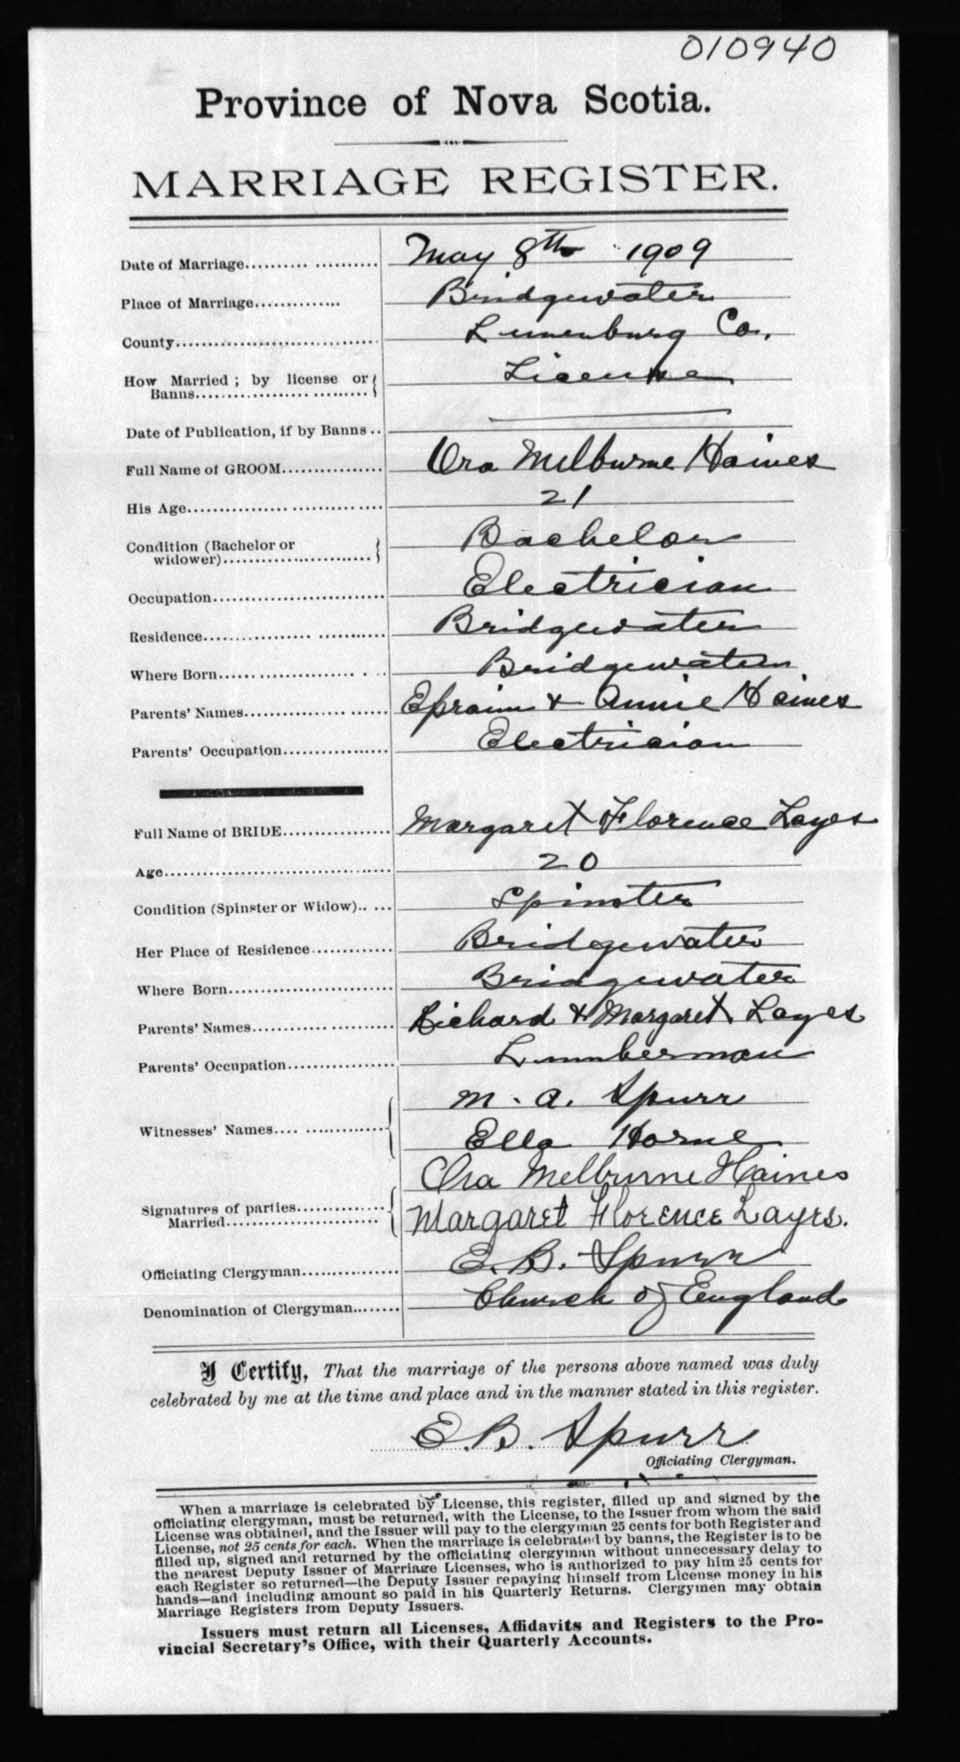 010940
Province of Nova Scotia.
MARRIAGE REGISTER.
Date of Marriage.......... .......... May 8th 1909
Place of Marriage............. Bridgewater
County.............................. Lunenburg Co.
How Married ; by license or License
Banns.................... .........
Date of Publication, if by Banns ..
Full Name of GROOM................ Ora Melburne Haines
His Age.................. .............. 21
Condition (Bachelor or Bachelor
widower)......................
Occupation............................ Electrician
Residence................. ........... Bridgewater
Where Born...... ................ . .. Bridgewater
Parents' Names.................. ...... Efraim & Annie Haines
Parents' Occupation................. Electrician
Full Name of BRIDE................. Margaret Florence Layes
Age..................................... 20
Condition (Spinster or Widow).. ... Spinster
Her Place of Residence............. Bridgewater
Where Born........................... Bridgewater
Parents' Names............. .......... Richard & Margaret Layes
Parents' Occupation.................. Lumberman
M. A. Spurr
Witnesses' Names.... ............. Ella Horne
Ora Melburne Haines
Signatures of parties..............
Married......................... Margaret Florence Layes.
Officiating Clergyman............... E. B. Spurr
Denomination of Clergyman........ Church of England
I Certify, That the marriage of the persons above named was duly
celebrated by me at the time and place and in the manner stated in this register.
E. B. Spurr
Officiating Clergyman.
When a marriage is celebrated by License, this register, filled up and signed by the
officiating clergyman, must be returned, with the License, to the Issuer from whom the said
License was obtained, and the Issuer will pay to the clergyman 25 cents for both Register and
License, not 25 cents for each. When the marriage is celebrated by banns, the Register is to be
filled up, signed and returned by the officiating clergyman without unnecessary delay to
the nearest Deputy Issuer of Marriage Licenses, who is authorized to pay him 25 cents for
each Register so returned—the Deputy Issuer repaying himself from License money in his
hands—and including amount so paid in his Quarterly Returns. Clergymen may obtain
Marriage Registers from Deputy Issuers.
Issuers must return all Licenses, Affidavits and Registers to the Pro-
vincial Secretary's Office, with their Quarterly Accounts.